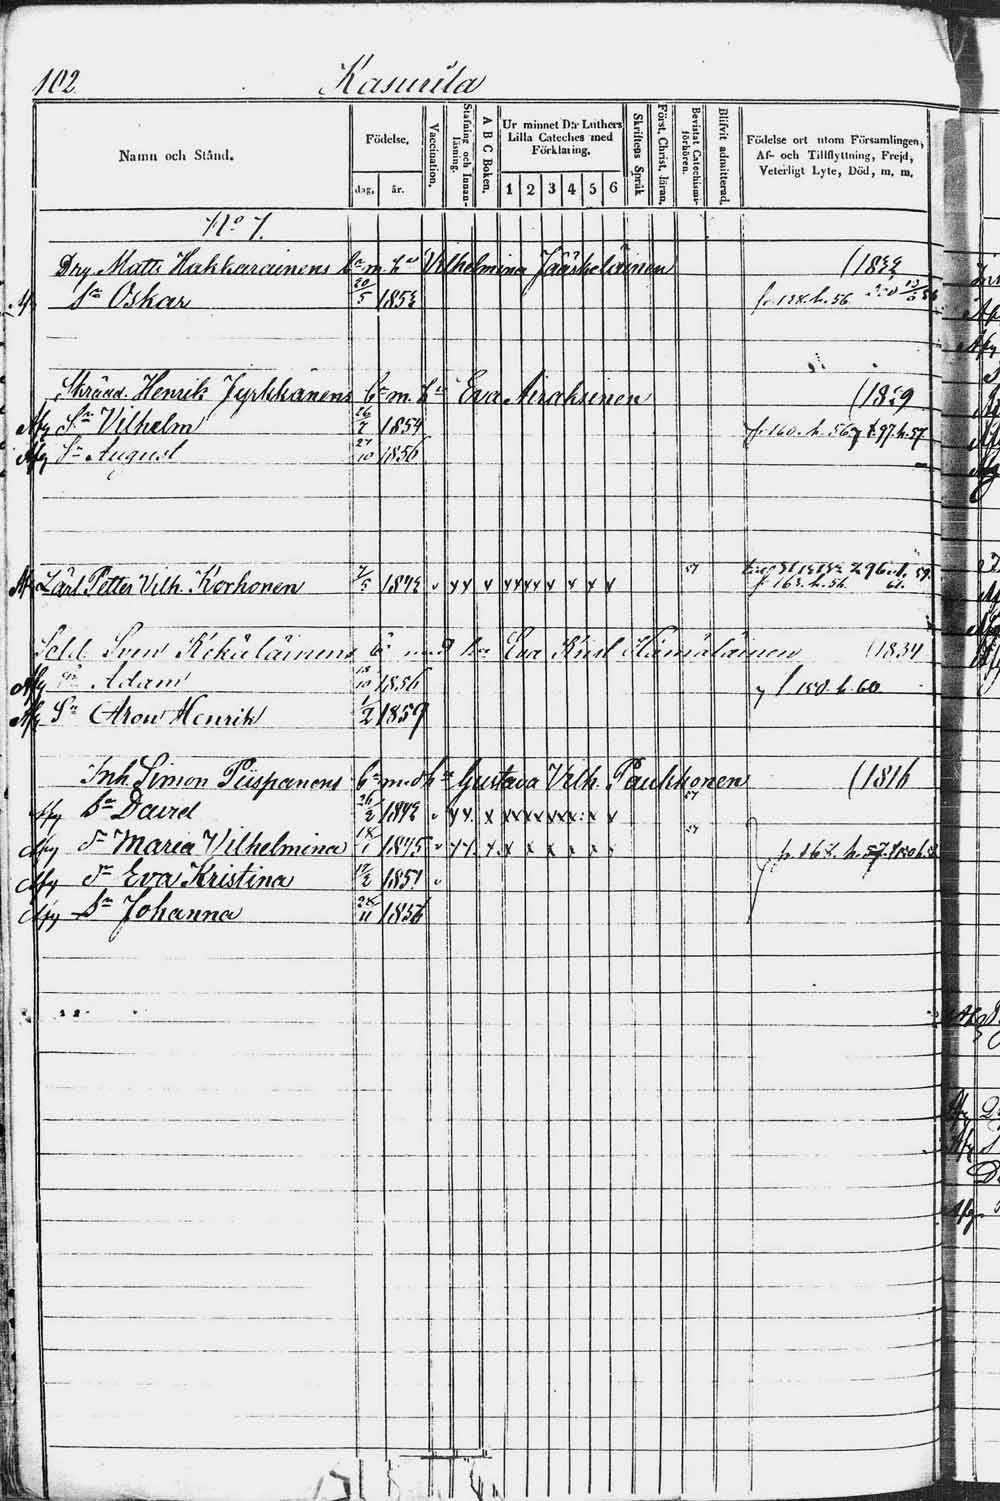 102. Kasurila
Namn och Stånd.
Födelse.
dag, år.
Vaccination.
Stafning och Innanläsning.
A B C Boken.
Ur minnet D:r Luthers Lilla Cateches med Förklaring.
1 2 3 4 5 6
Skriftens Språk
Först. Christ. läran.
Bevistat Catechismiförhören.
Blifvit admitterad.
Födelse ort utom Församlingen, Af- och Tillflyttning, Frejd, Veterligt Lyte, Död, m. m.
N:o 7.
Drg Matts Hakkarainens b:n m. h:u Vilhelmina Jääskeläinen
S:n Oskar 20/5 185
Henrik Jyrkkänens b:n m. h:u Eva Airaksinen (1829
Afg S:n Vilhelm 26/7 1854 fr 160. h. 56 97. h. 57
Afg S:n August 27/10 1856
Afg Lärl Petter Vilh. Korhonen 7/5 1842 v x x x x x x x x x x 57 fr 163. h. 56
Sold. Sven Kekäläinens b:n med h:u Eva Krist. Hämäläinen (1834
Afg S:n Adam 18/10 1856 150. h. 60
Afg S:n Aron Henrik 1/2 1859
Inh. Simon Piispanens b:n med h:u Gustava Vilh. Paukkonen (1816
Afg S:n David 26/2 1842 v x x x x x x x x x x 57
Afg D:r Maria Vilhelmina 18/1 1845 v x x x x x x x x x 57
Afg D:r Eva Kristina 17/2 1851 v
Afg Johanna 28/11 1856